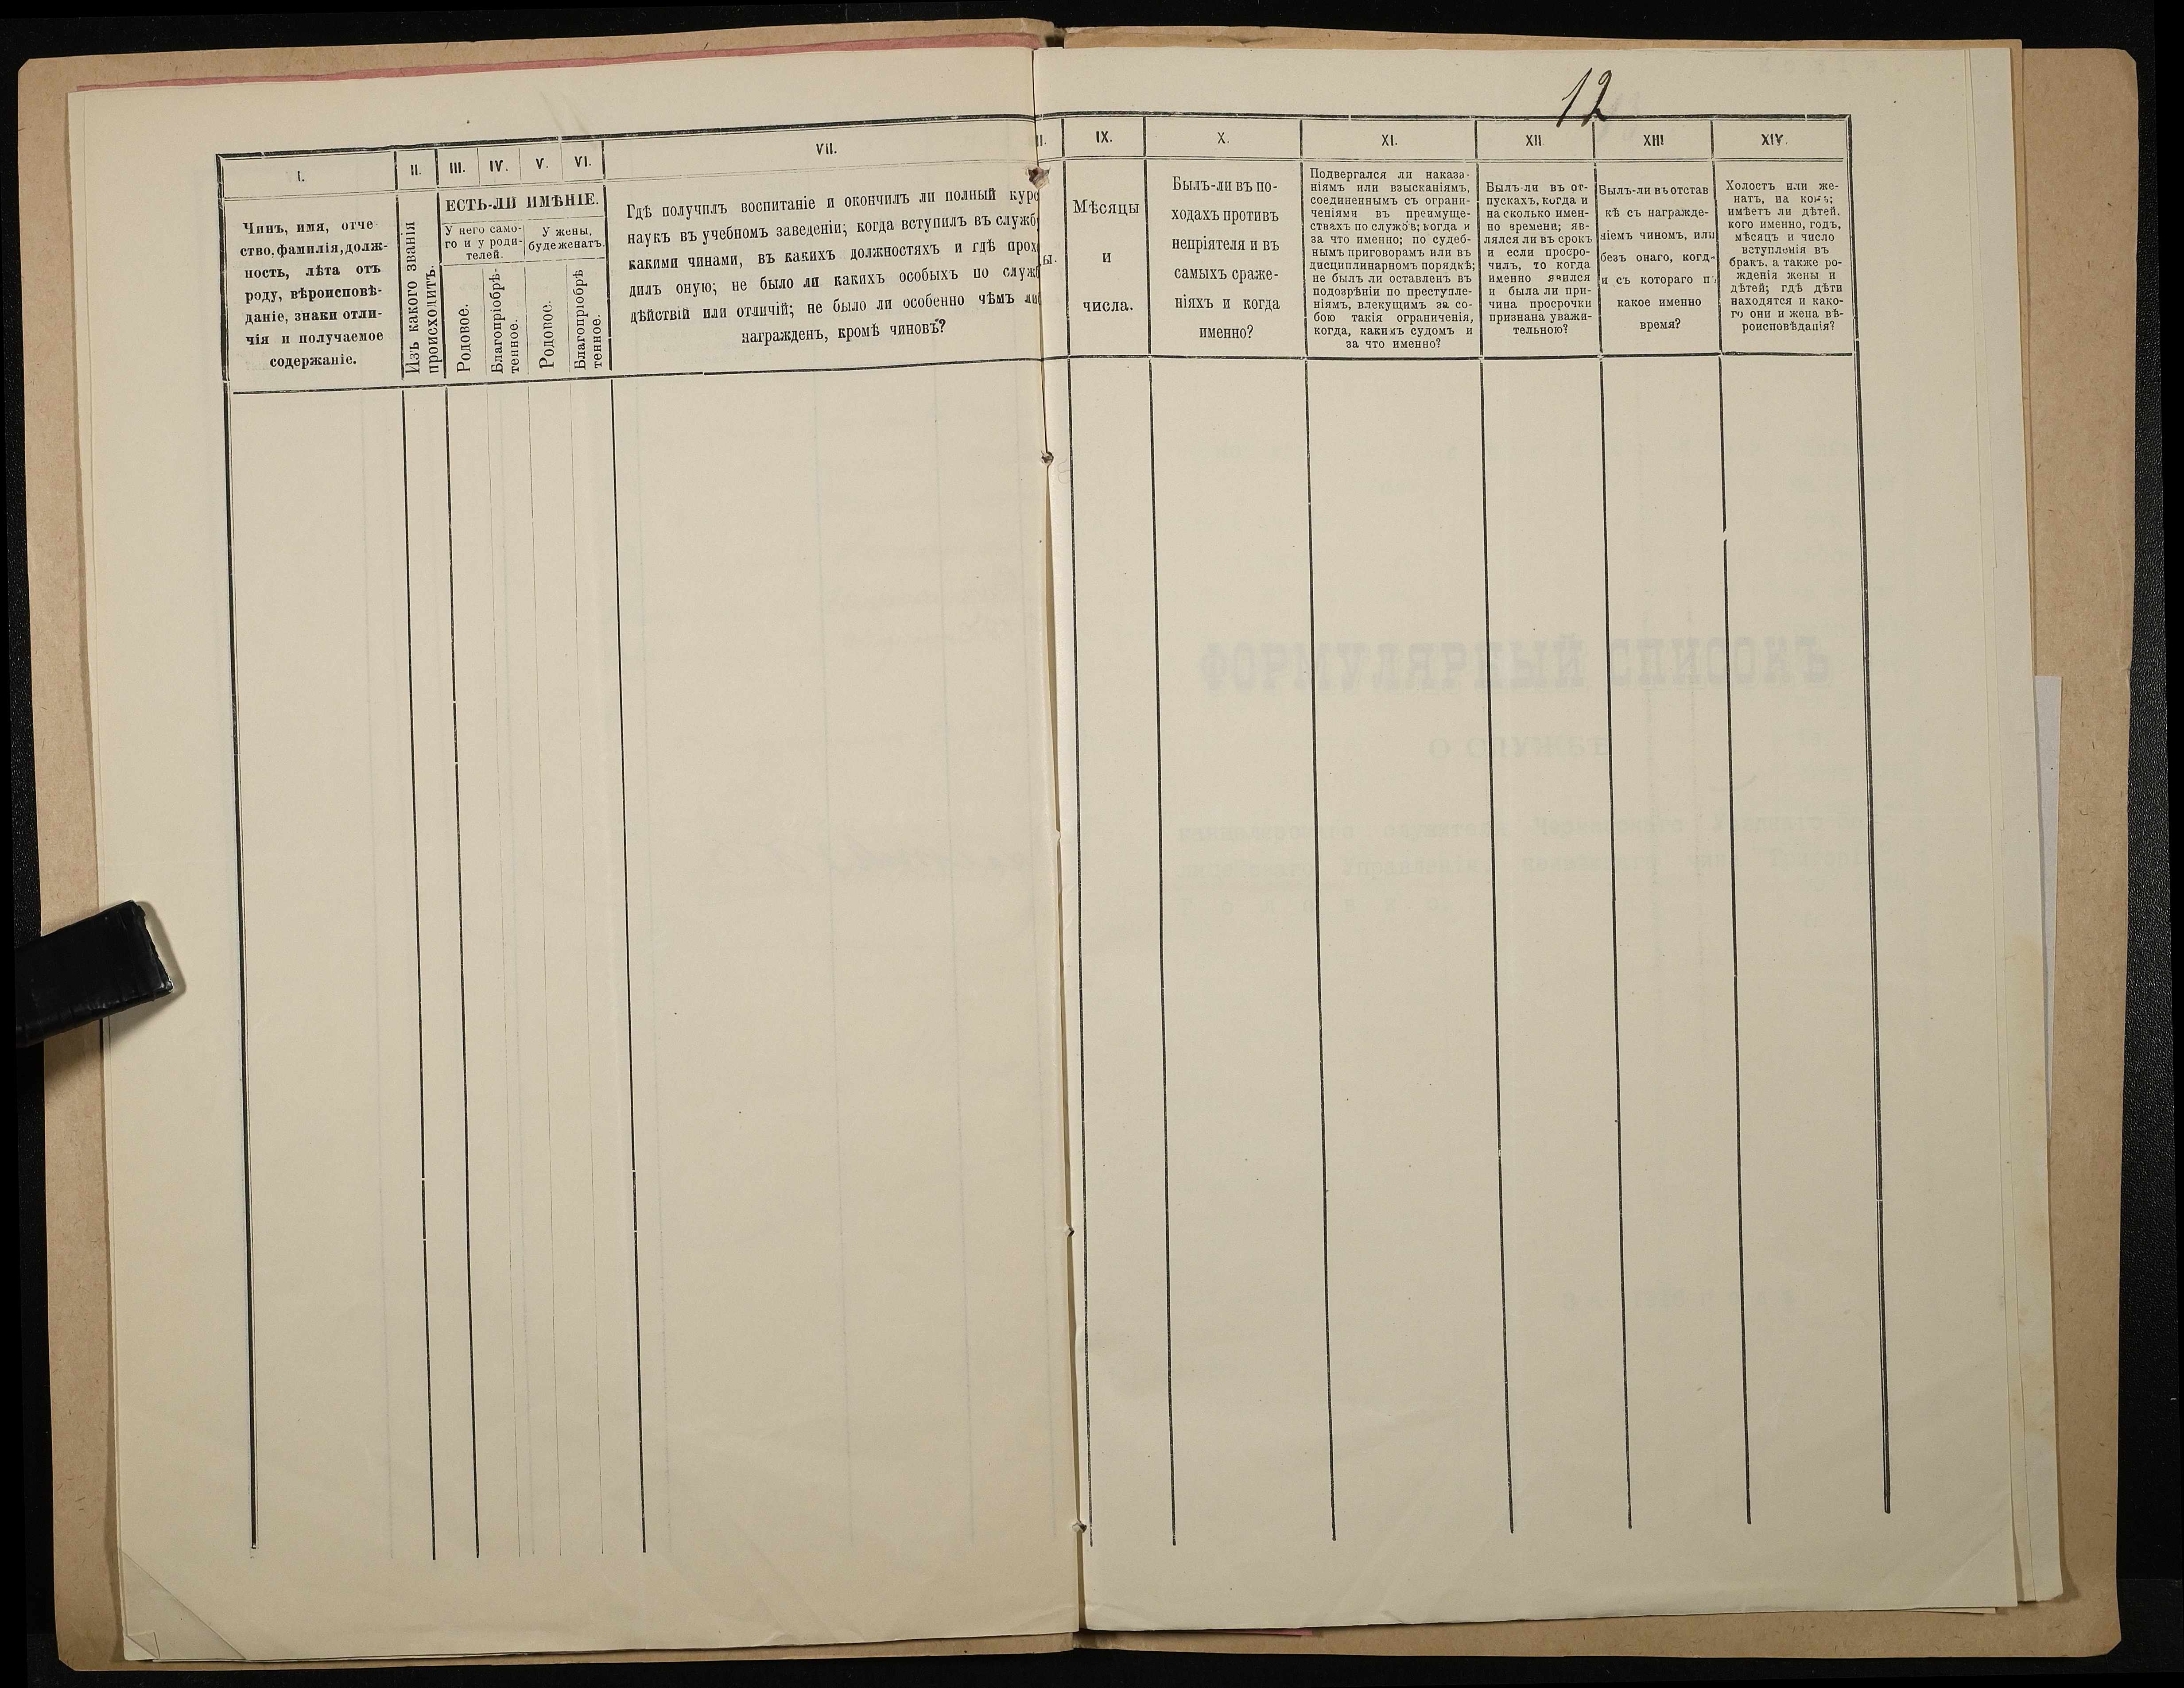 12
I.
Чинъ, имя, отче
ство, фамилія, долж-
ность, лѣта отъ
роду, вѣроисповѣ-
даніе, знаки отли-
чія и получаемое
содержаніе.
II.
Изъ какого званія
происходитъ.
III. IV. V. VI.
ЕСТЬ-ЛИ ИМѢНІЕ.
У него само-
го и у роди-
телей.
У жены,
буде женатъ.
Родовое.
Благопріобрѣ-
тенное.
Родовое.
Благопріобрѣ
тенное.
VII.
Гдѣ получилъ воспитаніе и окончилъ ли полный курс
наукъ въ учебномъ заведеніи; когда вступилъ въ служб
какими чинами, въ какихъ должностяхъ и гдѣ прох
дилъ оную; не было ли какихъ особыхъ по служ
дѣйствій или отличій; не было ли особенно чѣмъ ли
награжденъ, кромѣ чиновъ?
II.
ы.
IX.
Мѣсяцы
и
числа.
X.
Былъ-ли въ по-
ходахъ противъ
непріятеля и въ
самыхъ сраже-
ніяхъ и когда
именно?
XI.
Подвергался ли наказа-
ніямъ или взысканіямъ,
соединеннымъ съ ограни-
ченіями въ преимуще-
ствахъ по службѣ; когда и
за что именно; по судеб-
нымъ приговорамъ или въ
дисциплинарномъ порядкѣ;
не былъ ли оставленъ въ
подозрѣніи по преступле-
ніямъ, влекущимъ за со-
бою такія ограниченія,
когда, какимъ судомъ и
за что именно?
XII
Былъ-ли въ от-
пускахъ, когда и
на сколько имен-
но времени; яв-
лялся ли въ срокъ
и если просро-
чилъ, то когда
именно явился
и была ли при-
чина просрочки
признана уважи-
тельною?
XIII
Былъ-ли въ отстав
кѣ съ награжде-
ніемъ чиномъ, или
безъ онаго, когд
и съ котораго п
какое именно
время?
XIV.
Холостъ или же-
натъ, на комъ;
имѣетъ ли дѣтей,
кого именно, годъ,
мѣсяцъ и число
вступленія въ
бракъ, а также ро-
жденія жены и
дѣтей; гдѣ дѣти
находятся и како-
го они и жена вѣ-
роисповѣданія?